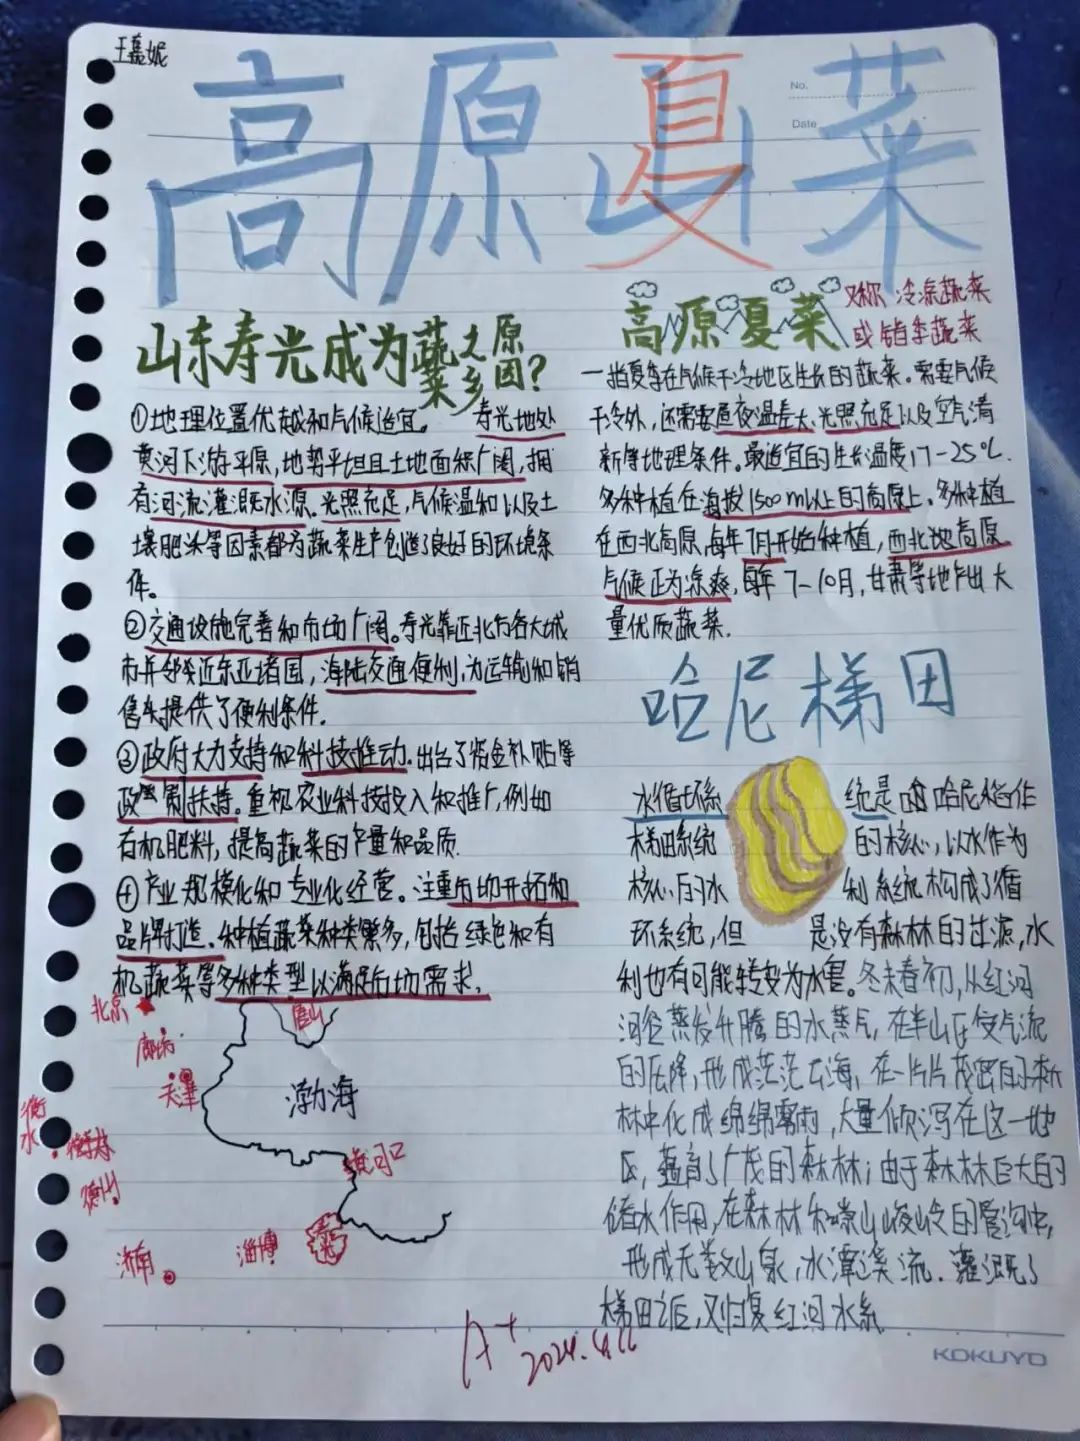 高原夏菜
No.
Date
山东寿光成为蔬菜之乡原因?
①地理位置优越和气候适宜。 寿光地处
黄河下游平原,地势平坦且土地面积广阔,拥
有河流灌溉水源。光照充足,气候温和以及土
壤肥沃等因素都为蔬菜生产创造了良好的环境条
件。
②交通设施完善和市场广阔。寿光靠近北方各大城
市并邻近东亚诸国,海陆交通便利,为运输和销
售提供了便利条件.
③政府大力支持和科技推动.出台了资金补贴等
政策扶持。重视农业科技投入和推广,例如
有机肥料,提高蔬菜的产量和品质.
④产业规模化和专业化经营。注重市场开拓和
品牌打造.种植蔬菜种类繁多,包括绿色和有
机蔬菜等多种类型以满足市场需求.
北京
唐山
廊坊
天津
渤海
衡水
德州
黄河口
济南
淄博
寿光
高原夏菜
又称 冷凉蔬菜
或错季蔬菜
一指夏季在气候干冷地区生长的蔬菜。需要气候
干冷外,还需要昼夜温差大、光照充足以及空气清
新等地理条件。最适宜的生长温度17-25℃.
多种植在海拔1500m以上的高原上。多种植
在西北高原,每年7月开始种植,西北地高原
气候正为凉爽,每年7-10月,甘肃等地产出大
量优质蔬菜.
哈尼梯田
水循环系统是哈尼稻作
梯田系统的核心,以水作为
核心的水利系统构成了循
环系统,但是没有森林的过滤,水
利也有可能转变为水害。冬末春初,从红河
河谷蒸发升腾的水蒸气,在半山区受气流
的压降,形成茫茫云海,在一片片茂密的森
林中化成绵绵雾雨,大量倾泻在这一地
区,蕴育了广茂的森林;由于森林巨大的
储水作用,在森林和崇山峻岭的管沟中,
形成无数山泉,水潭溪流.灌溉了
梯田之后,又归复红河水系
A+
KOKUYO